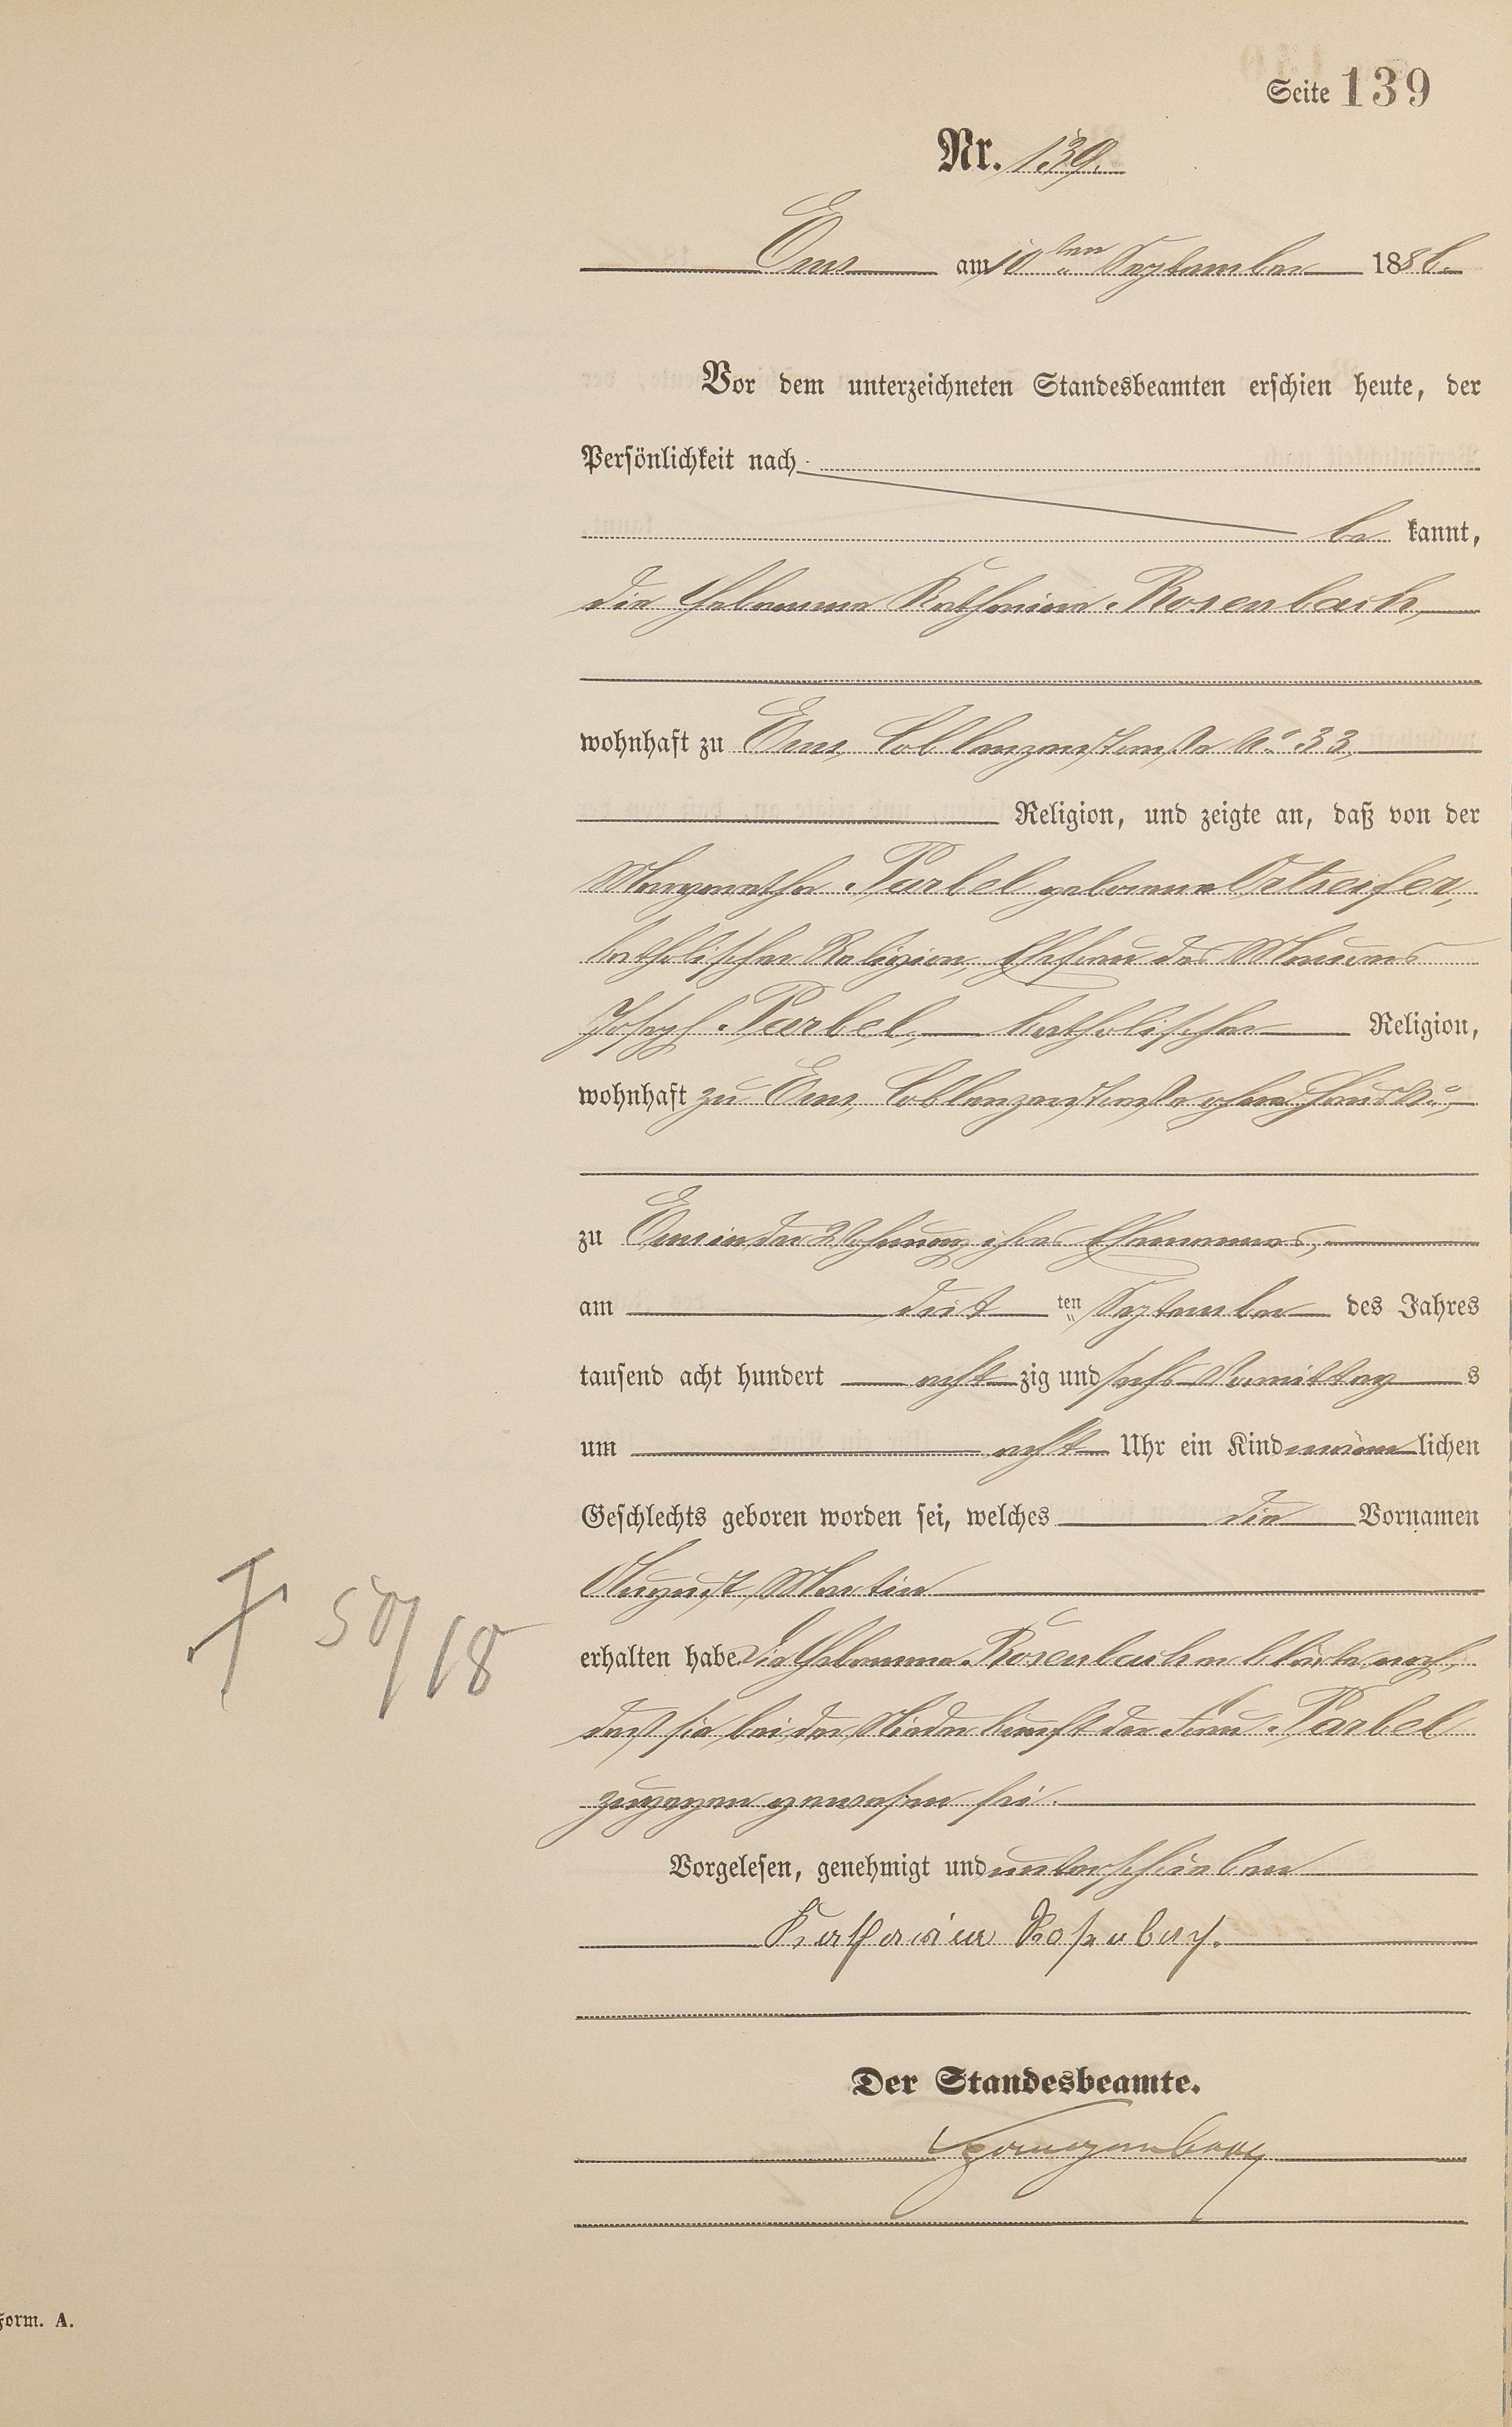 Seite 139
Nr. 139.
Ems am 10ten September 1886.
Vor dem unterzeichneten Standesbeamten erschien heute, der
Persönlichkeit nach
be kannt,
die Hebamme Katharina Rosenbach,
wohnhaft zu Ems, Coblenzerstraße No 33,
Religion, und zeigte an, daß von der
Margaretha Parbel geborene Ortseifer,
katholischer Religion, Ehefrau des Maurers
Joseph Parbel, katholischer Religion,
wohnhaft zu Ems, Coblenzerstraße ohne Haus No,
zu Ems in der Wohnung ihres Ehemannes,
am drit ten September des Jahres
tausend acht hundert acht zig und sechs Vormittag s
um acht Uhr ein Kind männ lichen
Geschlechts geboren worden sei, welches die Vornamen
August Martin
erhalten habe. Die Hebamme Rosenbach erklärte noch,
daß sie bei der Niederkunft der Frau Parbel
zugegen gewesen sei.
Vorgelesen, genehmigt und unterschrieben
Katharina Rosenbach.
Der Standesbeamte.
Form. A.
† 50/18